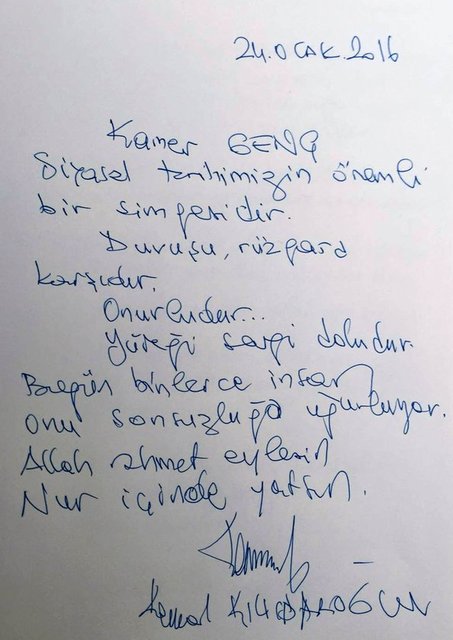 24.OCAK.2016
Kamer GENÇ
Siyasal tarihimizin önemli
bir simgesidir.
Duruşu, rüzgara
karşıdır.
Onurludur...
Yüreği sevgi doludur.
Bugün binlerce insan
onu sonsuzluğa uğurluyor.
Allah rahmet eylesin
Nur içinde yatsın.
Kemal KILIÇDAROĞLU